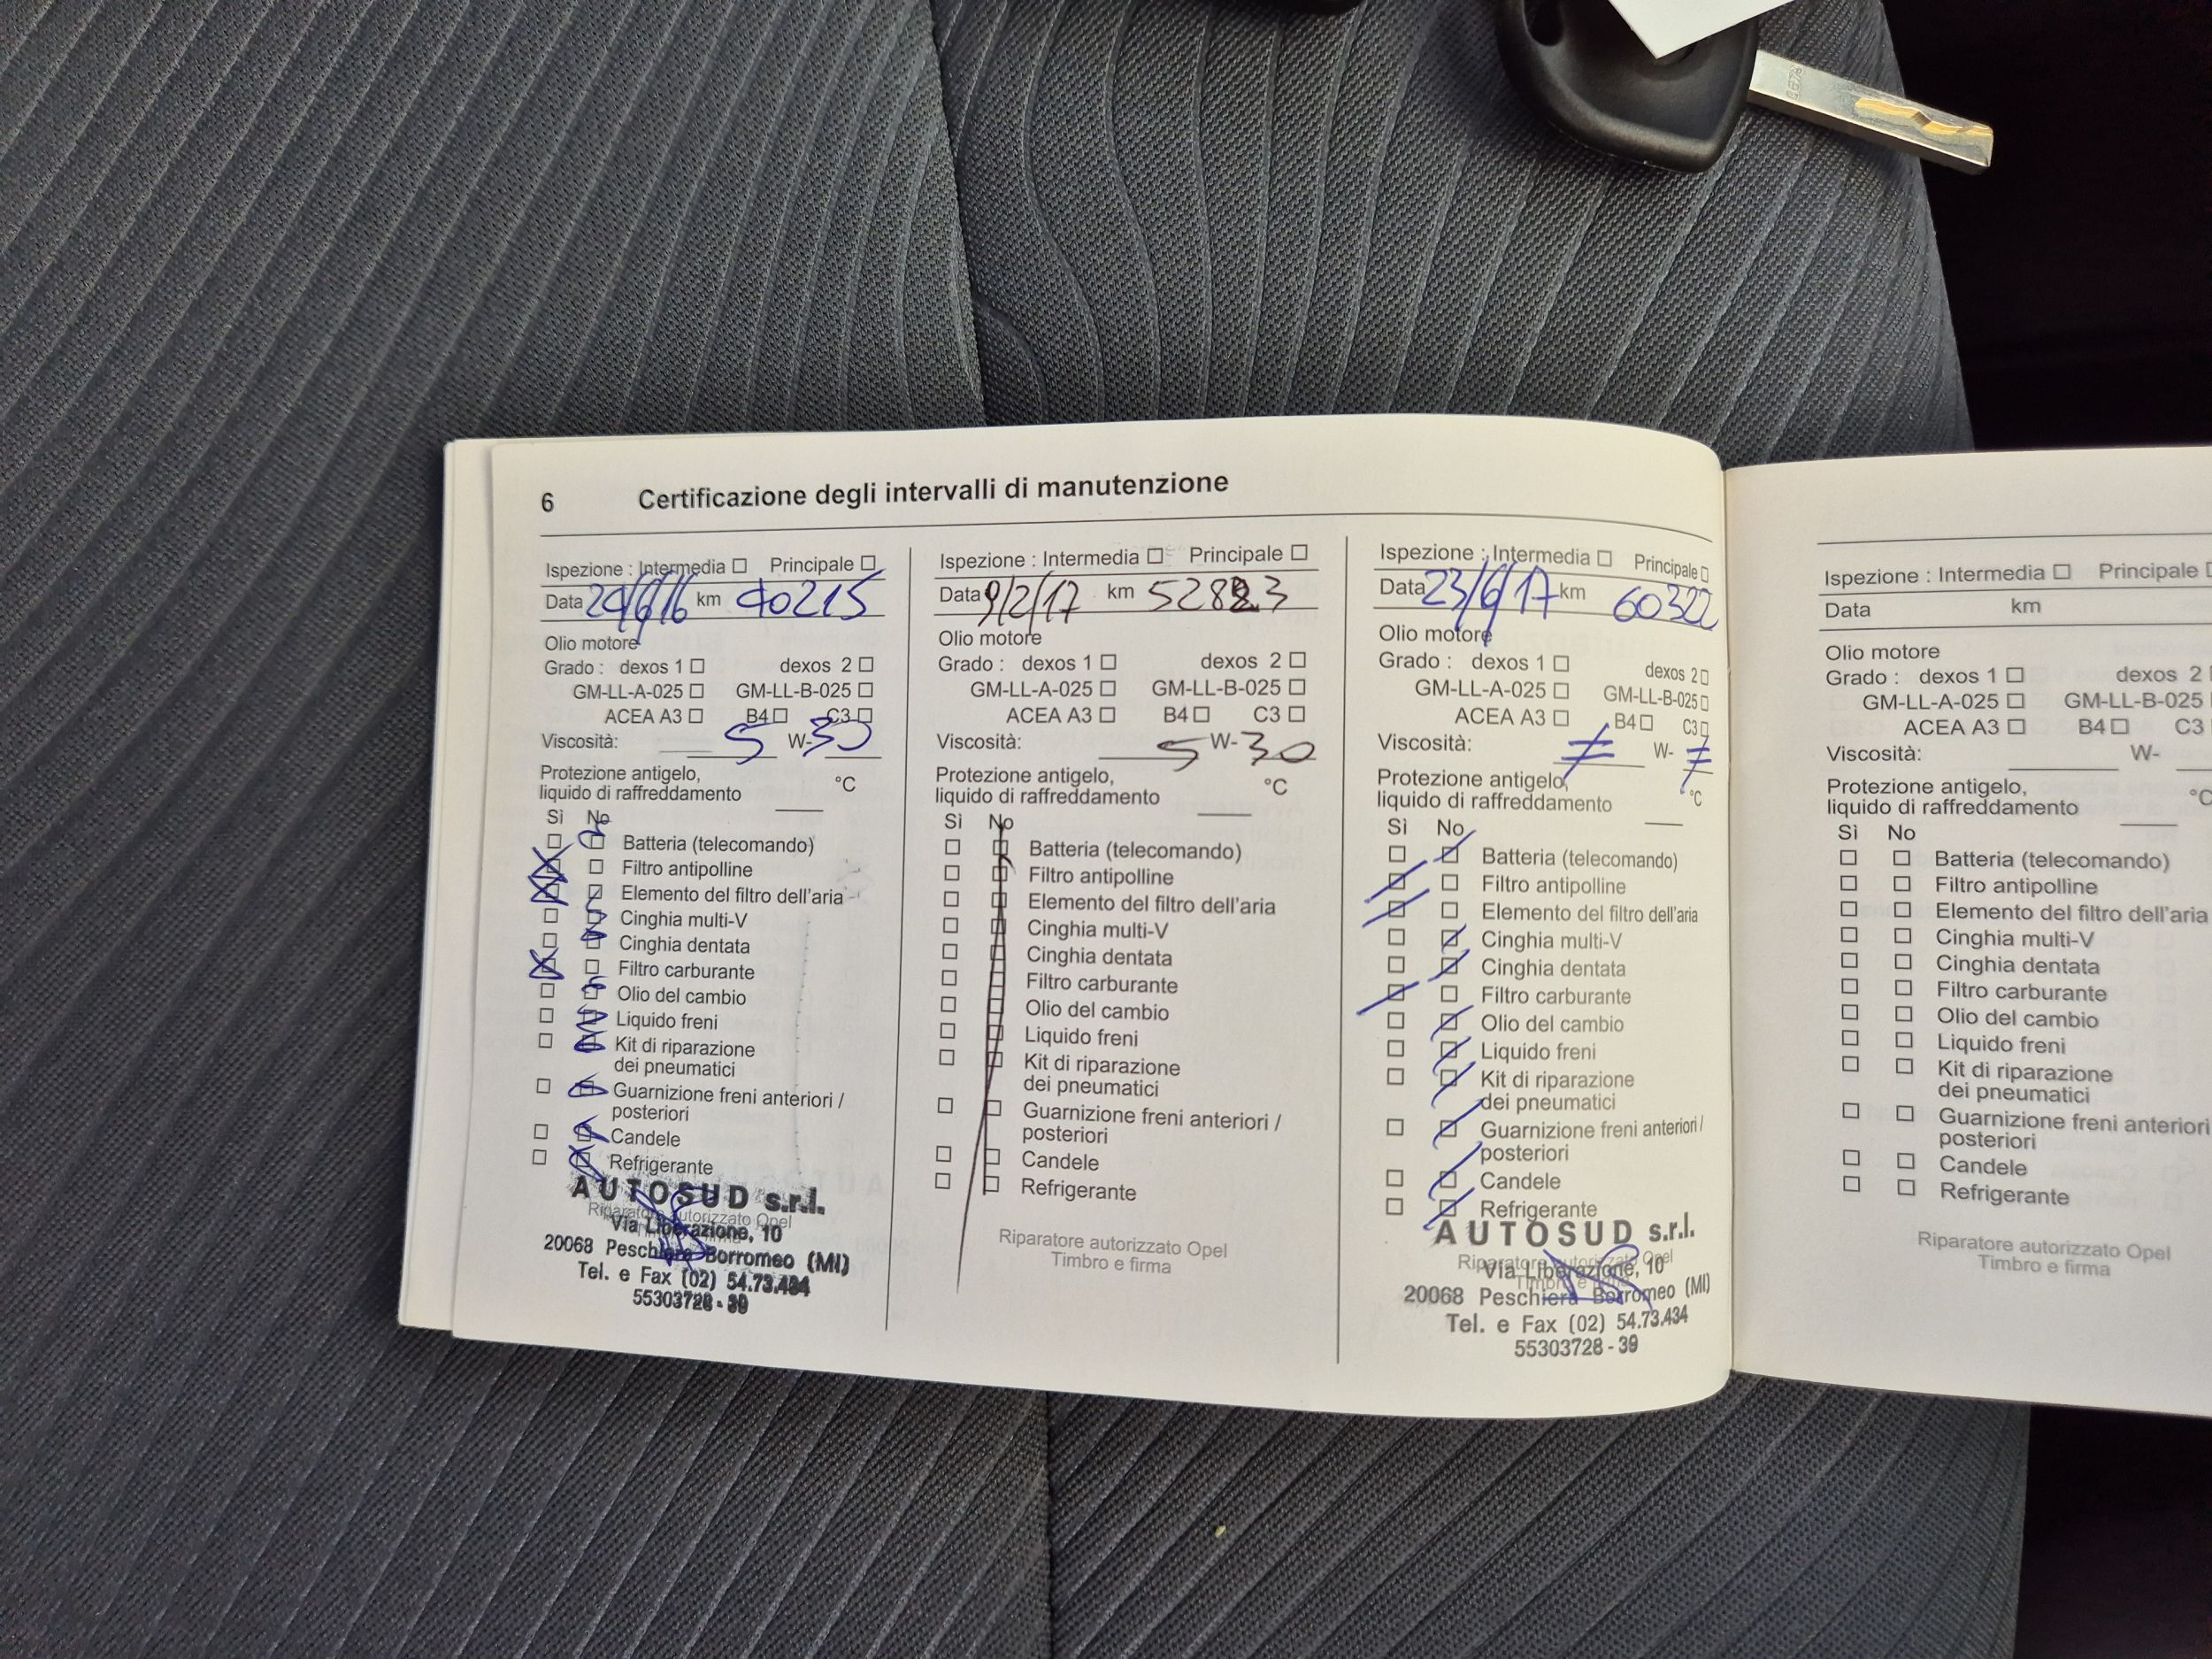 6 Certificazione degli intervalli di manutenzione
Ispezione : Intermedia ☐ Principale ☐
Data 24/6/16 km 40215
Olio motore
Grado : dexos 1 ☐ dexos 2 ☐
GM-LL-A-025 ☐ GM-LL-B-025 ☐
ACEA A3 ☐ B4 ☐ C3 ☐
Viscosità: 5 W- 30
Protezione antigelo,
liquido di raffreddamento °C
Sì No
Batteria (telecomando)
Filtro antipolline
Elemento del filtro dell'aria
Cinghia multi-V
Cinghia dentata
Filtro carburante
Olio del cambio
Liquido freni
Kit di riparazione
dei pneumatici
Guarnizione freni anteriori /
posteriori
Candele
Refrigerante
AUTOSUD s.r.l.
Riparatore autorizzato Opel
Via Liberazione, 10
20068 Peschiera Borromeo (MI)
Tel. e Fax (02) 54.73.434
55303728 - 39
Ispezione : Intermedia ☐ Principale ☐
Data 9/2/17 km
Olio motore
Grado : dexos 1 ☐ dexos 2 ☐
GM-LL-A-025 ☐ GM-LL-B-025 ☐
ACEA A3 ☐ B4 ☐ C3 ☐
Viscosità: 5 W- 30
Protezione antigelo,
liquido di raffreddamento °C
Sì No
Batteria (telecomando)
Filtro antipolline
Elemento del filtro dell'aria
Cinghia multi-V
Cinghia dentata
Filtro carburante
Olio del cambio
Liquido freni
Kit di riparazione
dei pneumatici
Guarnizione freni anteriori /
posteriori
Candele
Refrigerante
Riparatore autorizzato Opel
Timbro e firma
Ispezione : Intermedia ☐ Principale ☐
Data 23/6/17 km 60322
Olio motore
Grado : dexos 1 ☐ dexos 2 ☐
GM-LL-A-025 ☐ GM-LL-B-025 ☐
ACEA A3 ☐ B4 ☐ C3 ☐
Viscosità: W-
Protezione antigelo,
liquido di raffreddamento °C
Sì No
Batteria (telecomando)
Filtro antipolline
Elemento del filtro dell'aria
Cinghia multi-V
Cinghia dentata
Filtro carburante
Olio del cambio
Liquido freni
Kit di riparazione
dei pneumatici
Guarnizione freni anteriori /
posteriori
Candele
Refrigerante
AUTOSUD s.r.l.
Riparatore autorizzato Opel
Via Liberazione, 10
Timbro e
20068 Peschiera Borromeo (MI)
Tel. e Fax (02) 54.73.434
55303728 - 39
Ispezione : Intermedia ☐ Principale
Data km
Olio motore
Grado : dexos 1 ☐ dexos 2
GM-LL-A-025 ☐ GM-LL-B-025
ACEA A3 ☐ B4 ☐ C3
Viscosità: W-
Protezione antigelo,
liquido di raffreddamento °C
Sì No
Batteria (telecomando)
Filtro antipolline
Elemento del filtro dell'aria
Cinghia multi-V
Cinghia dentata
Filtro carburante
Olio del cambio
Liquido freni
Kit di riparazione
dei pneumatici
Guarnizione freni anteriori
posteriori
Candele
Refrigerante
Riparatore autorizzato Opel
Timbro e firma